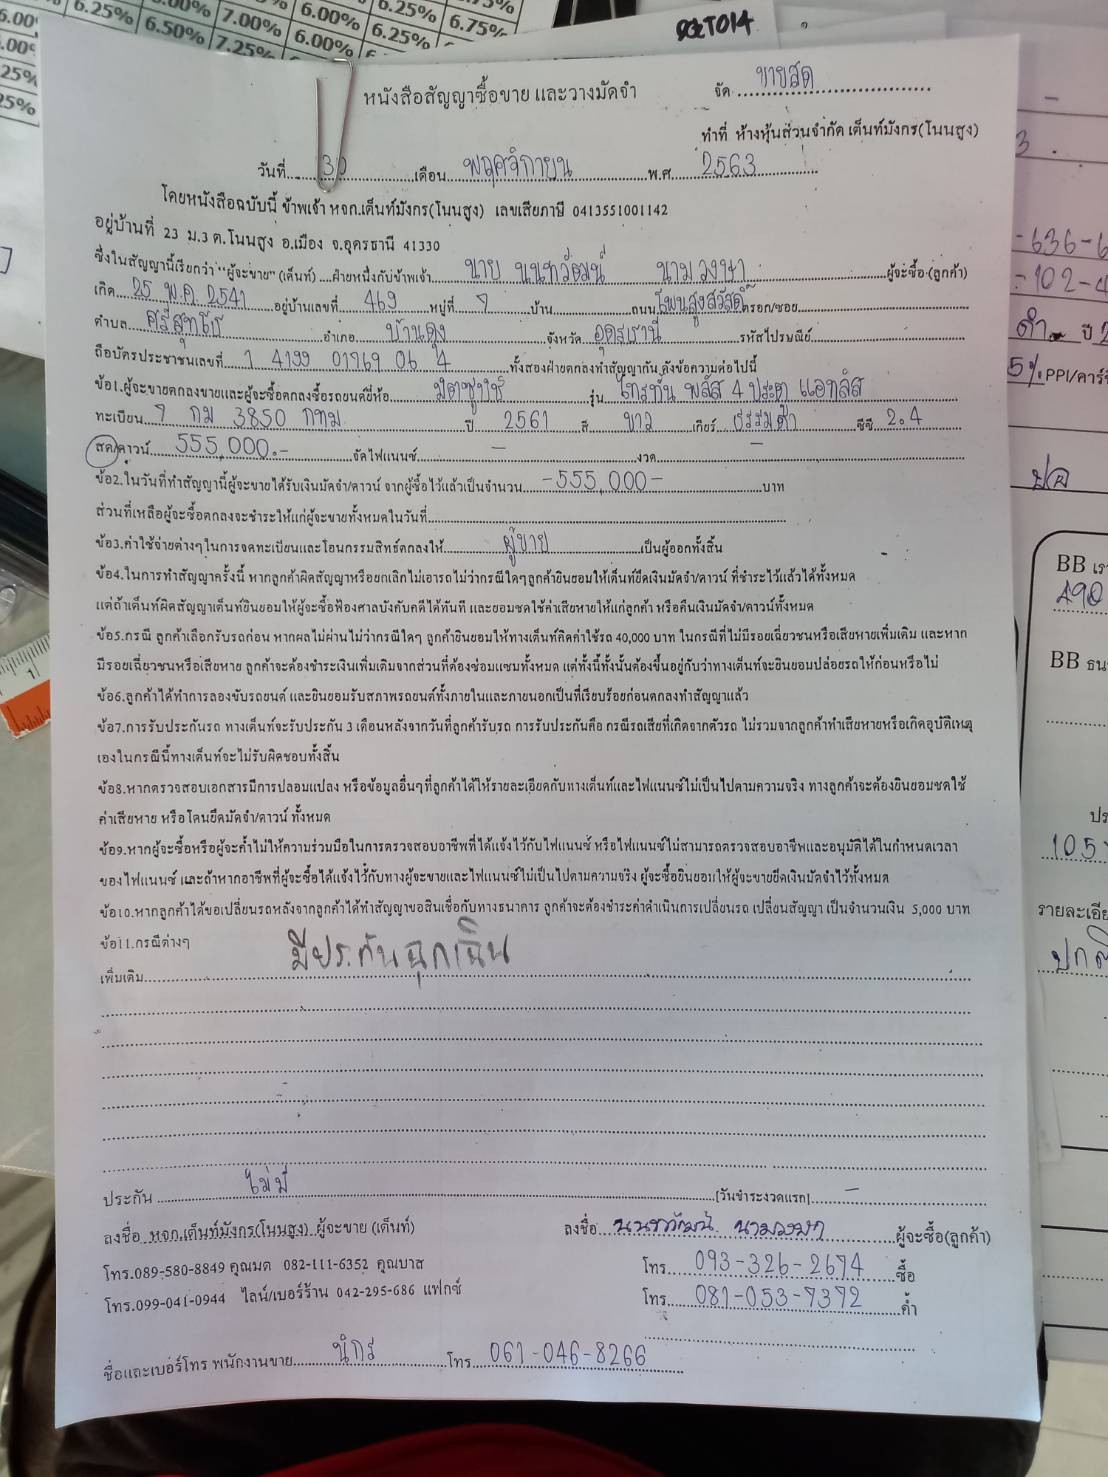 6.25% 6.50% 7.00% 7.25% 6.00% 6.00% 6.25% 6.25% 6.75%
หนังสือสัญญาซื้อขาย และวางมัดจำ จัด ขายสด
ทำที่ ห้างหุ้นส่วนจำกัด เต็นท์มังกร(โนนสูง)
วันที่ 30 เดือน พฤศจิกายน พ.ศ. 2563
โดยหนังสือฉบับนี้ ข้าพเจ้า หจก.เต็นท์มังกร(โนนสูง) เลขเสียภาษี 0413551001142
อยู่บ้านที่ 23 ม.3 ต.โนนสูง อ.เมือง จ.อุดรธานี 41330
ซึ่งในสัญญานี้เรียกว่า "ผู้จะขาย" (เต็นท์) ....ฝ่ายหนึ่งกับข้าพเจ้า นาย นนทวัฒน์ นามวงษา ผู้จะซื้อ (ลูกค้า)
เกิด 25 พ.ค. 2541 อยู่บ้านเลขที่ 469 หมู่ที่ 7 บ้าน ถนน โพนสูงสวัสดิ์ ตรอก/ซอย
ตำบล ศรีสุทโธ อำเภอ บ้านดุง จังหวัด อุดรธานี รหัสไปรษณีย์
ถือบัตรประชาชนเลขที่ 1 4199 01769 06 4 ทั้งสองฝ่ายตกลงทำสัญญากัน ดังข้อความต่อไปนี้
ข้อ1.ผู้จะขายตกลงขายและผู้จะซื้อตกลงซื้อรถยนต์ยี่ห้อ มิตซูบิชิ รุ่น ไทรทัน พลัส 4 ประตู แอทลีส
ทะเบียน 7 กม 3850 กทม ปี 2561 สี ขาว เกียร์ ธรรมดา ซีซี 2.4
สด/ดาวน์ 555,000.- จัดไฟแนนซ์ - งวด -
ข้อ2.ในวันที่ทำสัญญานี้ผู้จะขายได้รับเงินมัดจำ/ดาวน์ จากผู้ซื้อไว้แล้วเป็นจำนวน -555,000- บาท
ส่วนที่เหลือผู้จะซื้อตกลงจะชำระให้แก่ผู้จะขายทั้งหมดในวันที่
ข้อ3.ค่าใช้จ่ายต่างๆในการจดทะเบียนและโอนกรรมสิทธ์ตกลงให้ ผู้ขาย เป็นผู้ออกทั้งสิ้น
ข้อ4.ในการทำสัญญาครั้งนี้ หากลูกค้าผิดสัญญาหรือยกเลิกไม่เอารถไม่ว่ากรณีใดๆลูกค้ายินยอมให้เต็นท์ยึดเงินมัดจำ/ดาวน์ ที่ชำระไว้แล้วได้ทั้งหมด
แต่ถ้าเต็นท์ผิดสัญญาเต็นท์ยินยอมให้ผู้จะซื้อฟ้องศาลบังคับคดีได้ทันที และยอมชดใช้ค่าเสียหายให้แก่ลูกค้า หรือคืนเงินมัดจำ/ดาวน์ทั้งหมด
ข้อ5.กรณี ลูกค้าเลือกรับรถก่อน หากผลไม่ผ่านไม่ว่ากรณีใดๆ ลูกค้ายินยอมให้ทางเต็นท์คิดค่าใช้รถ 40,000 บาท ในกรณีที่ไม่มีรอยเฉี่ยวชนหรือเสียหายเพิ่มเติม และหาก
มีรอยเฉี่ยวชนหรือเสียหาย ลูกค้าจะต้องชำระเงินเพิ่มเติมจากส่วนที่ต้องซ่อมแซมทั้งหมด แต่ทั้งนี้ทั้งนั้นต้องขึ้นอยู่กับว่าทางเต็นท์จะยินยอมปล่อยรถให้ก่อนหรือไม่
ข้อ6.ลูกค้าได้ทำการลองขับรถยนต์ และยินยอมรับสภาพรถยนต์ทั้งภายในและภายนอกเป็นที่เรียบร้อยก่อนตกลงทำสัญญาแล้ว
ข้อ7.การรับประกันรถ ทางเต็นท์จะรับประกัน 3 เดือนหลังจากวันที่ลูกค้ารับรถ การรับประกันคือ กรณีรถเสียที่เกิดจากตัวรถ ไม่รวมจากลูกค้าทำเสียหายหรือเกิดอุบัติเหตุ
เองในกรณีนี้ทางเต็นท์จะไม่รับผิดชอบทั้งสิ้น
ข้อ8.หากตรวจสอบเอกสารมีการปลอมแปลง หรือข้อมูลอื่นๆที่ลูกค้าได้ให้รายละเอียดกับทางเต็นท์และไฟแนนซ์ไม่เป็นไปตามความจริง ทางลูกค้าจะต้องยินยอมชดใช้
ค่าเสียหาย หรือโดนยึดมัดจำ/ดาวน์ ทั้งหมด
ข้อ9.หากผู้จะซื้อหรือผู้จะค้ำไม่ให้ความร่วมมือในการตรวจสอบอาชีพที่ได้แจ้งไว้กับไฟแนนซ์ หรือไฟแนนซ์ไม่สามารถตรวจสอบอาชีพและอนุมัติได้ในกำหนดเวลา
ของไฟแนนซ์ และถ้าหากอาชีพที่ผู้จะซื้อได้แจ้งไว้กับทางผู้จะขายและไฟแนนซ์ไม่เป็นไปตามความจริง ผู้จะซื้อยินยอมให้ผู้จะขายยึดเงินมัดจำไว้ทั้งหมด
ข้อ10.หากลูกค้าได้ขอเปลี่ยนรถหลังจากลูกค้าได้ทำสัญญาขอสินเชื่อกับทางธนาคาร ลูกค้าจะต้องชำระค่าดำเนินการเปลี่ยนรถ เปลี่ยนสัญญา เป็นจำนวนเงิน 5,000 บาท
ข้อ11.กรณีต่างๆ
เพิ่มเติม มีประกันฉุกเฉิน
ประกัน ไม่มี [วันชำระงวดแรก] -
ลงชื่อ หจก.เต็นท์มังกร(โนนสูง) ผู้จะขาย (เต็นท์) ลงชื่อ นนทวัฒน์ นามวงษา ผู้จะซื้อ(ลูกค้า)
โทร.089-580-8849 คุณมด 082-111-6352 คุณบาส โทร 093-326-2674 ซื้อ
โทร.099-041-0944 ไลน์/เบอร์ร้าน 042-295-686 แฟกซ์ โทร 081-053-7372 ค้ำ
ชื่อและเบอร์โทร พนักงานขาย นิกร โทร 061-046-8266
-636-6
-102-4
ดำ ปี 2
5% PPI/คาร์
BB เร
490
BB ธน
105
รายละเอีย
ปกติ